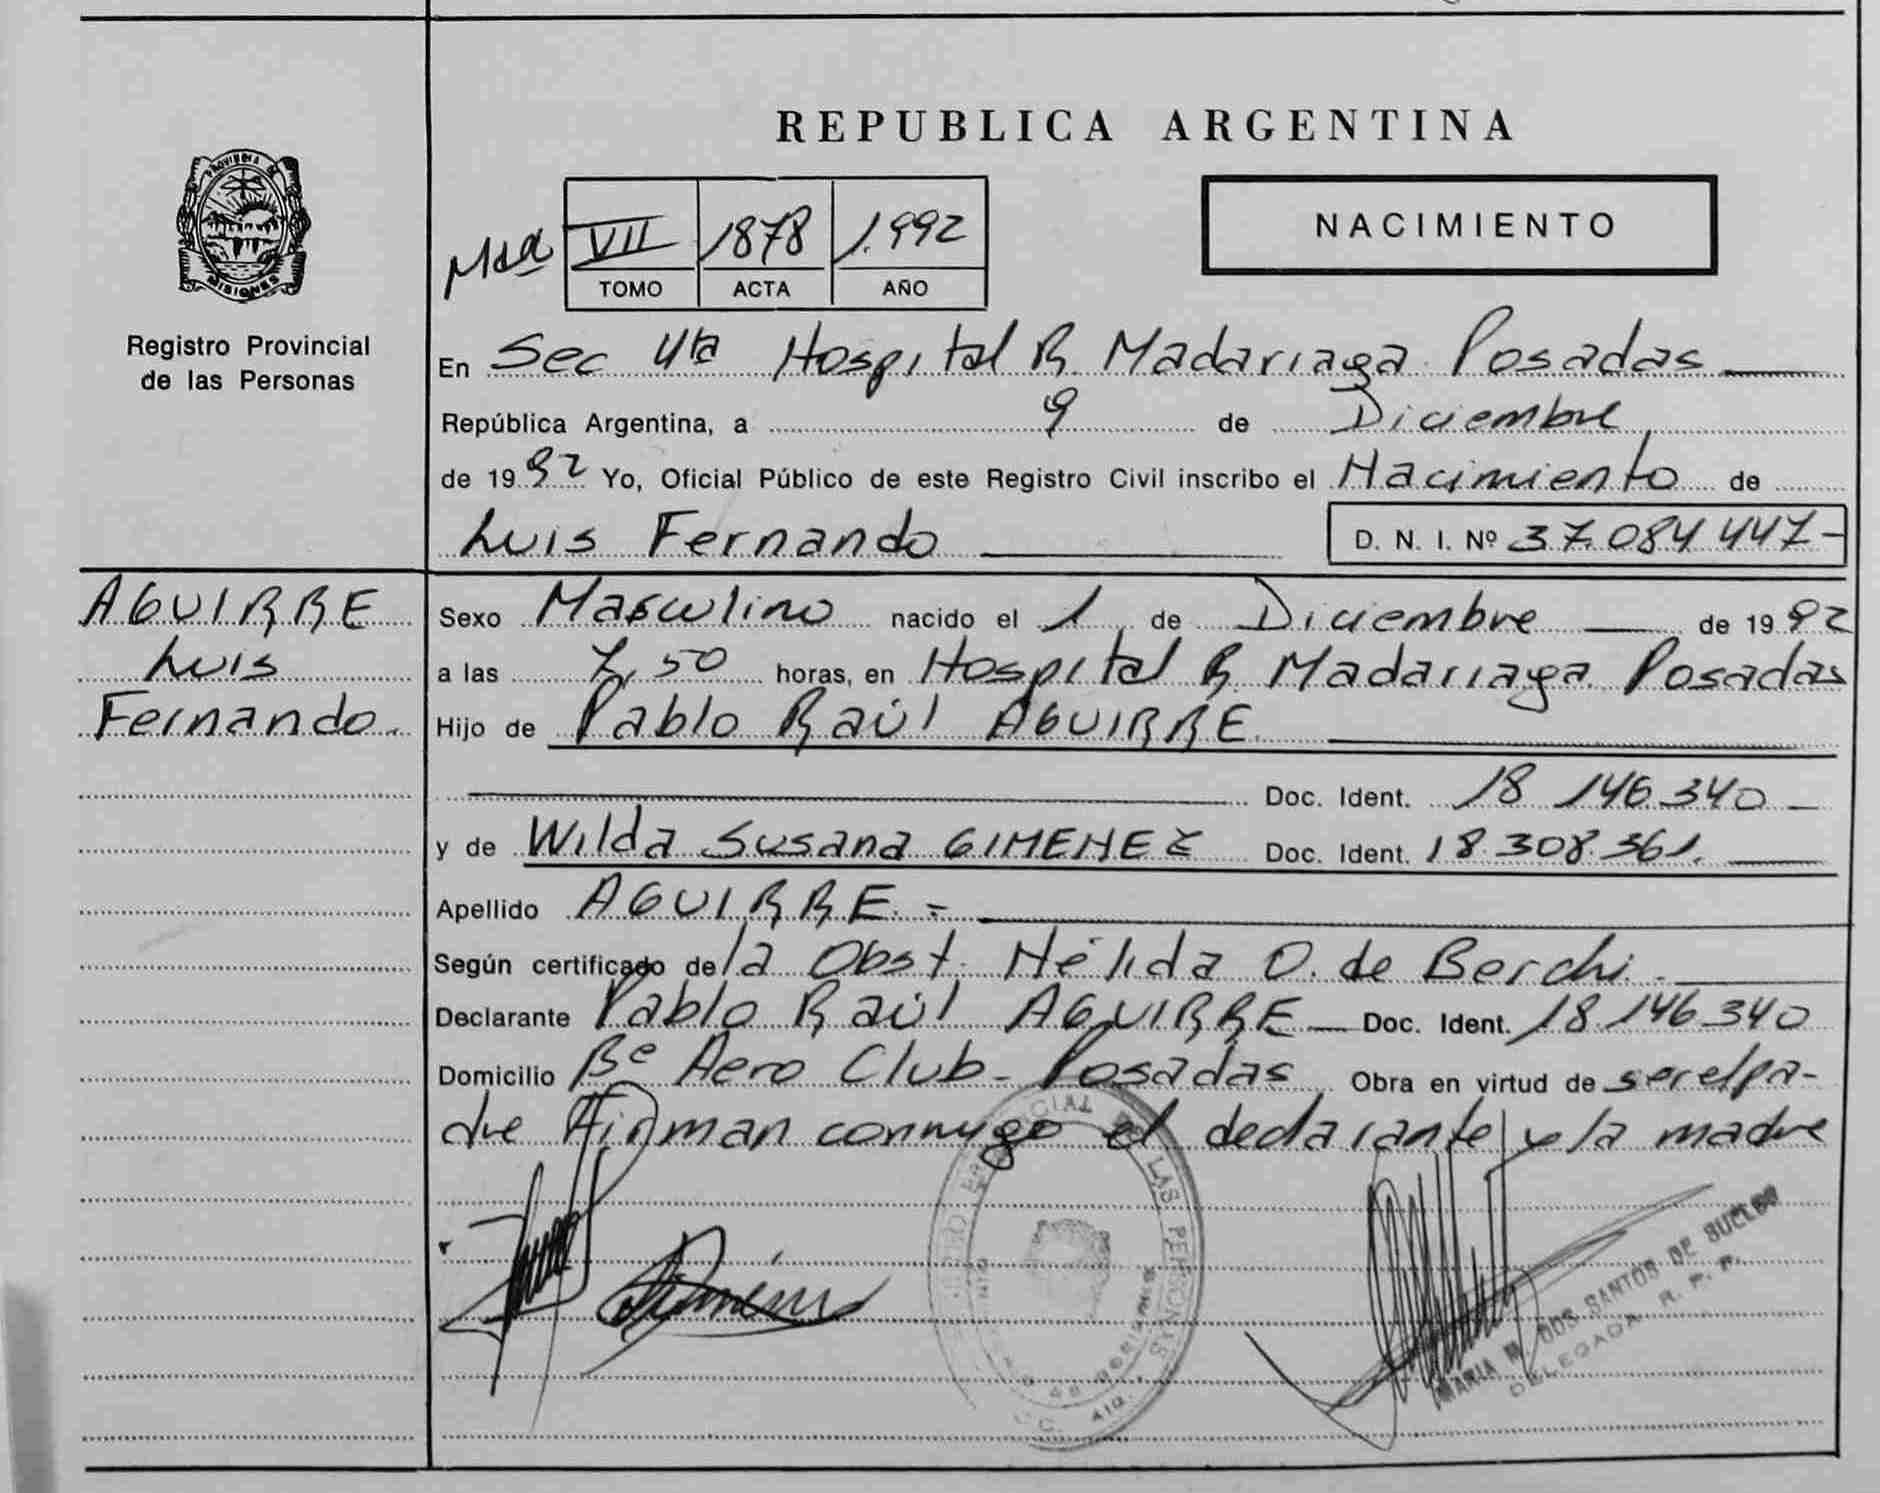 REPUBLICA ARGENTINA
PROVINCIA DE
MISIONES
Registro Provincial
de las Personas
NACIMIENTO
VII 1878 1.992
TOMO ACTA AÑO
En Sec 4ta Hospital R. Madariaga Posadas
República Argentina, a 9 de Diciembre
de 1992 Yo, Oficial Público de este Registro Civil inscribo el Nacimiento de
Luis Fernando D. N. I. Nº 37.084 447-
AGUIRRE
Luis
Fernando.
Sexo Masculino nacido el 1 de Diciembre de 1992
a las 7,50 horas, en Hospital R. Madariaga Posadas
Hijo de Pablo Raúl AGUIRRE.
Doc. Ident. 18 146.340
y de Wilda Susana GIMENEZ Doc. Ident. 18.308.361.
Apellido AGUIRRE.-
Según certificado de la Obst. Nélida O. de Berchi.
Declarante Pablo Raúl AGUIRRE Doc. Ident. 18.146.340
Domicilio Bº Aero Club- Posadas Obra en virtud de ser el pa-
dre Firman conmigo el declarante y la madre
LAS PERSONAS
MARIA M. DOS SANTOS DE BUELBO
DELEGADA R. P. P.